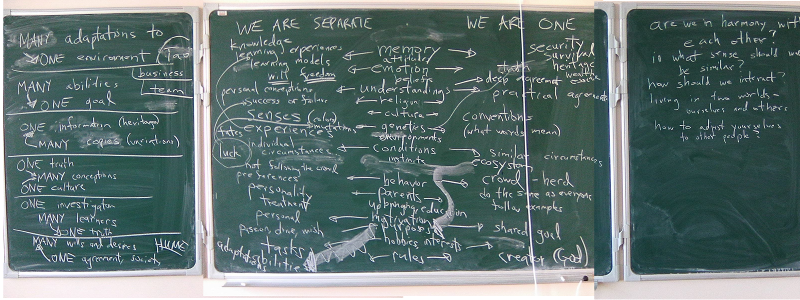 MANY adaptations to
ONE environment
Tao
business
team
MANY abilities
ONE goal
ONE information (heritage)
MANY copies (variations)
ONE truth
MANY conceptions
ONE culture
ONE investigator
MANY learners
ONE truth
MANY wills and desires
ONE agreement, society
WE ARE SEPARATE
WE ARE ONE
knowledge
learning experiences
learning models
will freedom
personal connotations
success or failure
senses
experience
fate
luck
individual
circumstances
preferences
personality
treatment
personal
tasks
memory
attitude
emotion
beliefs
understandings
religion
culture
genetics
environments
conditions
instincts
behavior
parents
upbringing, education
motivation
purposes
hobbies interests
rules
security
survival
heritage
wealth
truth
deep agreement
practical agreements
conventions
(what words mean)
similar circumstances
ecosystem
crowd - herd
do the same as everyone
follow examples
shared goal
creator (God)
are we in harmony with
each other?
in what sense should we
be similar?
how should we interact?
living in two worlds -
ourselves and others
how to adjust yourselves
to other people?